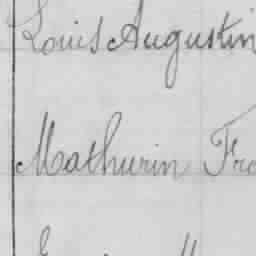 Louis Augustin
Mathurin